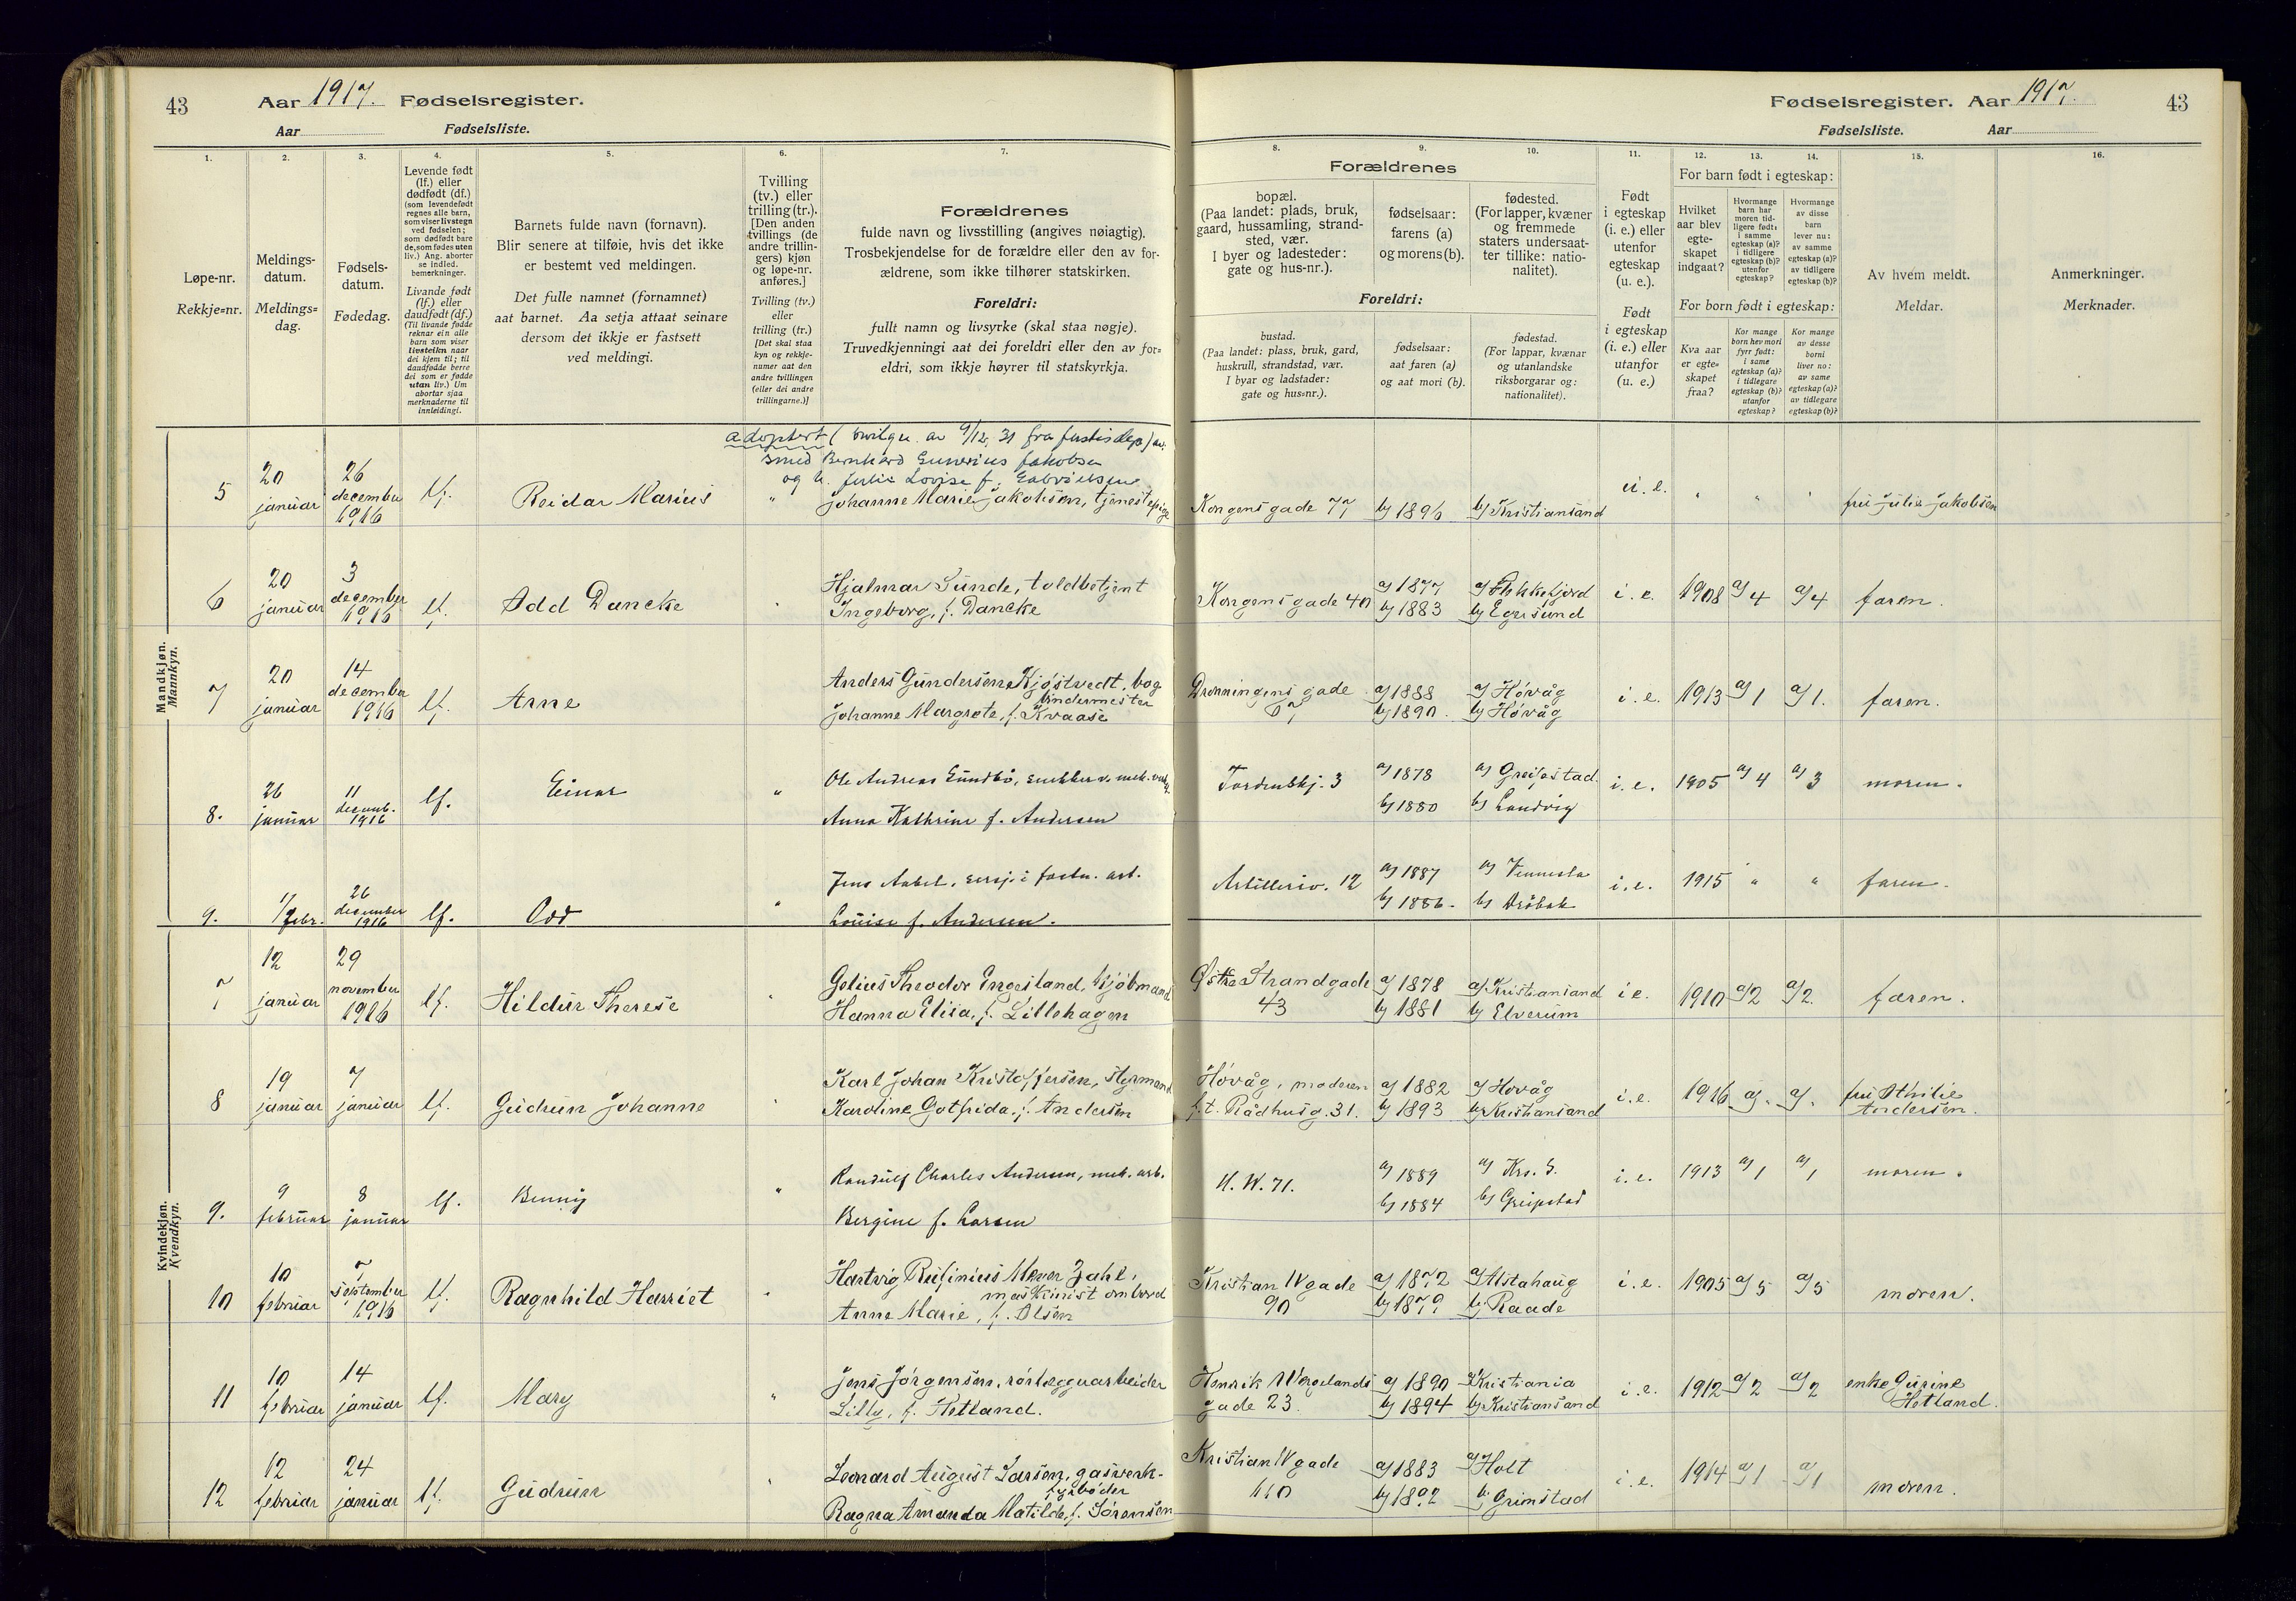 43 Aar 1917. Fødselsregister.
Aar Fødselsliste.
Fødselsregister. Aar 1917. 43
Fødselsliste. Aar
1. 2. 3. 4. 5. 6. 7. 8. 9. 10. 11. 12. 13. 14. 15. 16.
Løpe-nr.
Rekkje=nr.
Meldings-
datum.
Meldings=
dag.
Fødsels-
datum.
Fødedag.
Levende født
(lf.) eller
dødfødt (df.)
(som levendefødt
regnes alle barn,
som viser livstegn
ved fødselen;
som dødfødt bare
de, som fødes uten
liv.) Ang. aborter
se indled.
bemerkninger.
Livande født
(lf.) eller
daudfødt (df.)
(Til livande fødde
reknar ein alle
barn som viser
livsteikn naar
dei kjem til; til
daudfødde berre
dei som er fødde
utan liv.) Um
abortar sjaa
merknaderne til
innleidingi.
Barnets fulde navn (fornavn).
Blir senere at tilføie, hvis det ikke
er bestemt ved meldingen.
Det fulle namnet (fornamnet)
aat barnet. Aa setja attaat seinare
dersom det ikkje er fastsett
ved meldingi.
Tvilling
(tv.) eller
trilling (tr.).
[Den anden
tvillings (de
andre trillin-
gers) kjøn
og løpe-nr.
anføres.]
Tvilling (tv.)
eller
trilling (tr.)
[Det skal staa
kyn og rekkje-
numer aat den
andre tvillingen
(eller dei andre
trillingarne.)]
Forældrenes
fulde navn og livsstilling (angives nøiagtig).
Trosbekjendelse for de forældre eller den av for-
ældrene, som ikke tilhører statskirken.
Foreldri:
fullt namn og livsyrke (skal staa nøgje).
Truvedkjenningi aat dei foreldri eller den av for=
eldri, som ikkje høyrer til statskyrkja.
Forældrenes
bopæl.
(Paa landet: plads, bruk,
gaard, hussamling, strand-
sted, vær.
I byer og ladesteder:
gate og hus-nr.).
fødselsaar:
farens (a)
og morens (b).
fødested.
(For lapper, kvæner
og fremmede
staters undersaat-
ter tillike: natio-
nalitet).
Foreldri:
bustad.
(Paa landet: plass, bruk, gard,
huskrull, strandstad, vær.
I byar og ladstader:
gate og hus=nr.).
fødselsaar:
aat faren (a)
og aat mori (b).
fødestad.
(For lappar, kvænar
og utanlandske
riksborgarar og:
nationalitet).
Født
i egteskap
(i. e.) eller
utenfor
egteskap
(u. e.).
Født
i egteskap
(i. e.) eller
utanfor
(u. e.)
For barn født i egteskap:
Hvilket
aar blev
egte-
skapet
indgaat?
Hvormange
barn har
moren tid-
ligere født:
i samme
egteskap (a)?
i tidligere
egteskap (b)?
utenfor
egteskap?
Hvormange
av disse
barn
lever nu:
av samme
egteskap (a)?
av tidligere
egteskap (b)?
For born født i egteskap:
Kva aar
er egte=
skapet
fraa?
Kor mange
born hev mori
fyrr født:
i same
egteskap (a)?
i tidlegare
egteskap (b)?
utanfor
egteskap?
Kor mange
av desse
borni
liver no:
av same
egteskap (a)?
av tidlegare
egteskap (b)?
Av hvem meldt.
Meldar.
Anmerkninger.
Merknader.
Mandkjøn.
Mannkyn.
adoptert (bevilgn. av 9/12, 31 fra justisdep) av
smed Bernhard Gunerius Jakobsen
og h. Julie Lovise f. Gabrielsen
5 20 januar 26 december 1916 lf. Reidar Marius " Johanne Marie Jakobsen, tjenestepige Kongensgade 77 b) 1896 b) Kristiansand u. e. " " " fru Julie Jakobsen
6 20 januar 3 december 1916 lf. Odd Dancke " Hjalmar Sunde, toldbetjent
Ingeborg, f. Dancke Kongensgade 40 a) 1877 b) 1883 a) Flekkefjord b) Egersund i. e. 1908 a) 4 a) 4 faren.
7 20 januar 14 december 1916 lf. Arne Anders Gundersen Kjøstvedt, bog
bindermester
Johanne Margrete, f. Kvaase Dronningensgade 67 a) 1888 b) 1890. a) Høvåg b) Høvåg i. e. 1913 a) 1 a) 1. faren.
8. 26 januar 11 decemb. 1916 lf. Einar " Ole Andreas Sundbö, snekker v. mek. verks.
Anna Kathrine f. Andersen Tordenskj. 3 a) 1878 b) 1880 a) Greipstad b) Landvig i. e. 1905 a) 4 a) 3 moren.
9. 1/febr. 26 december 1916 lf. Odd " Jens Aabel, sersj. i festn. art.
Louise f. Andersen. Artilleriv. 12 a) 1887 b) 1886. a) Vennesla b) Dröbak i. e. 1915 " " faren.
Kvindekjøn.
Kvendkyn.
7 12 januar 29 november 1916 lf. Hildur Therese " Gelius Theodor Engesland, kjøbmand
Hanna Elisa, f. Lillehagen Østre Strandgade 43 a) 1878 b) 1881 a) Kristiansand b) Elverum i e. 1910 a) 2 a) 2. faren.
8 19 januar 7 januar lf. Gudrun Johanne " Karl Johan Kristoffersen, styrmand
Karoline Gotfrida, f. Andersen Høvåg, moderen
f. t. Rådhusg. 31. a) 1882 b) 1893 a) Høvåg b) Kristiansand i. e. 1916 a). a). fru Othilie Andersen.
9. 9 februar 8 januar lf. Benny " Randulf Charles Andersen, mek. arb.
Bergine f. Larsen H. W. 71. a) 1889 b) 1884 a) Krs. S. b) Greipstad i. e. 1913 a) 1 a) 1 moren.
10 10 februar 7 september 1916 lf. Ragnhild Harriet " Hartvig Rufinius Meyer Zahl,
maskinist ombord
Anne Marie, f. Olsen Kristian IV gade 90 a) 1872 b) 1879 a) Alstahaug b) Raade i. e. 1905 a) 5 a) 5 moren.
11 10 februar 14 januar lf. Mary " Jens Jørgensen, rørlæggerarbeider
Lilly, f. Hetland. Henrik Wergelands
gade 23. a) 1890 b) 1894 a) Kristiania b) Kristiansand i. e. 1912 a) 2 a) 2 enke Gurine Hetland.
12 12 februar 24 januar lf. Gudrun " Leonard August Larsen, gasverk-
fyrbøder
Ragna Amanda Matilde, f. Sørensen Kristian IV gade
110 a) 1883 b) 1892 a) Holt b) Grimstad i. e. 1914 a) 1 a) 1 moren.